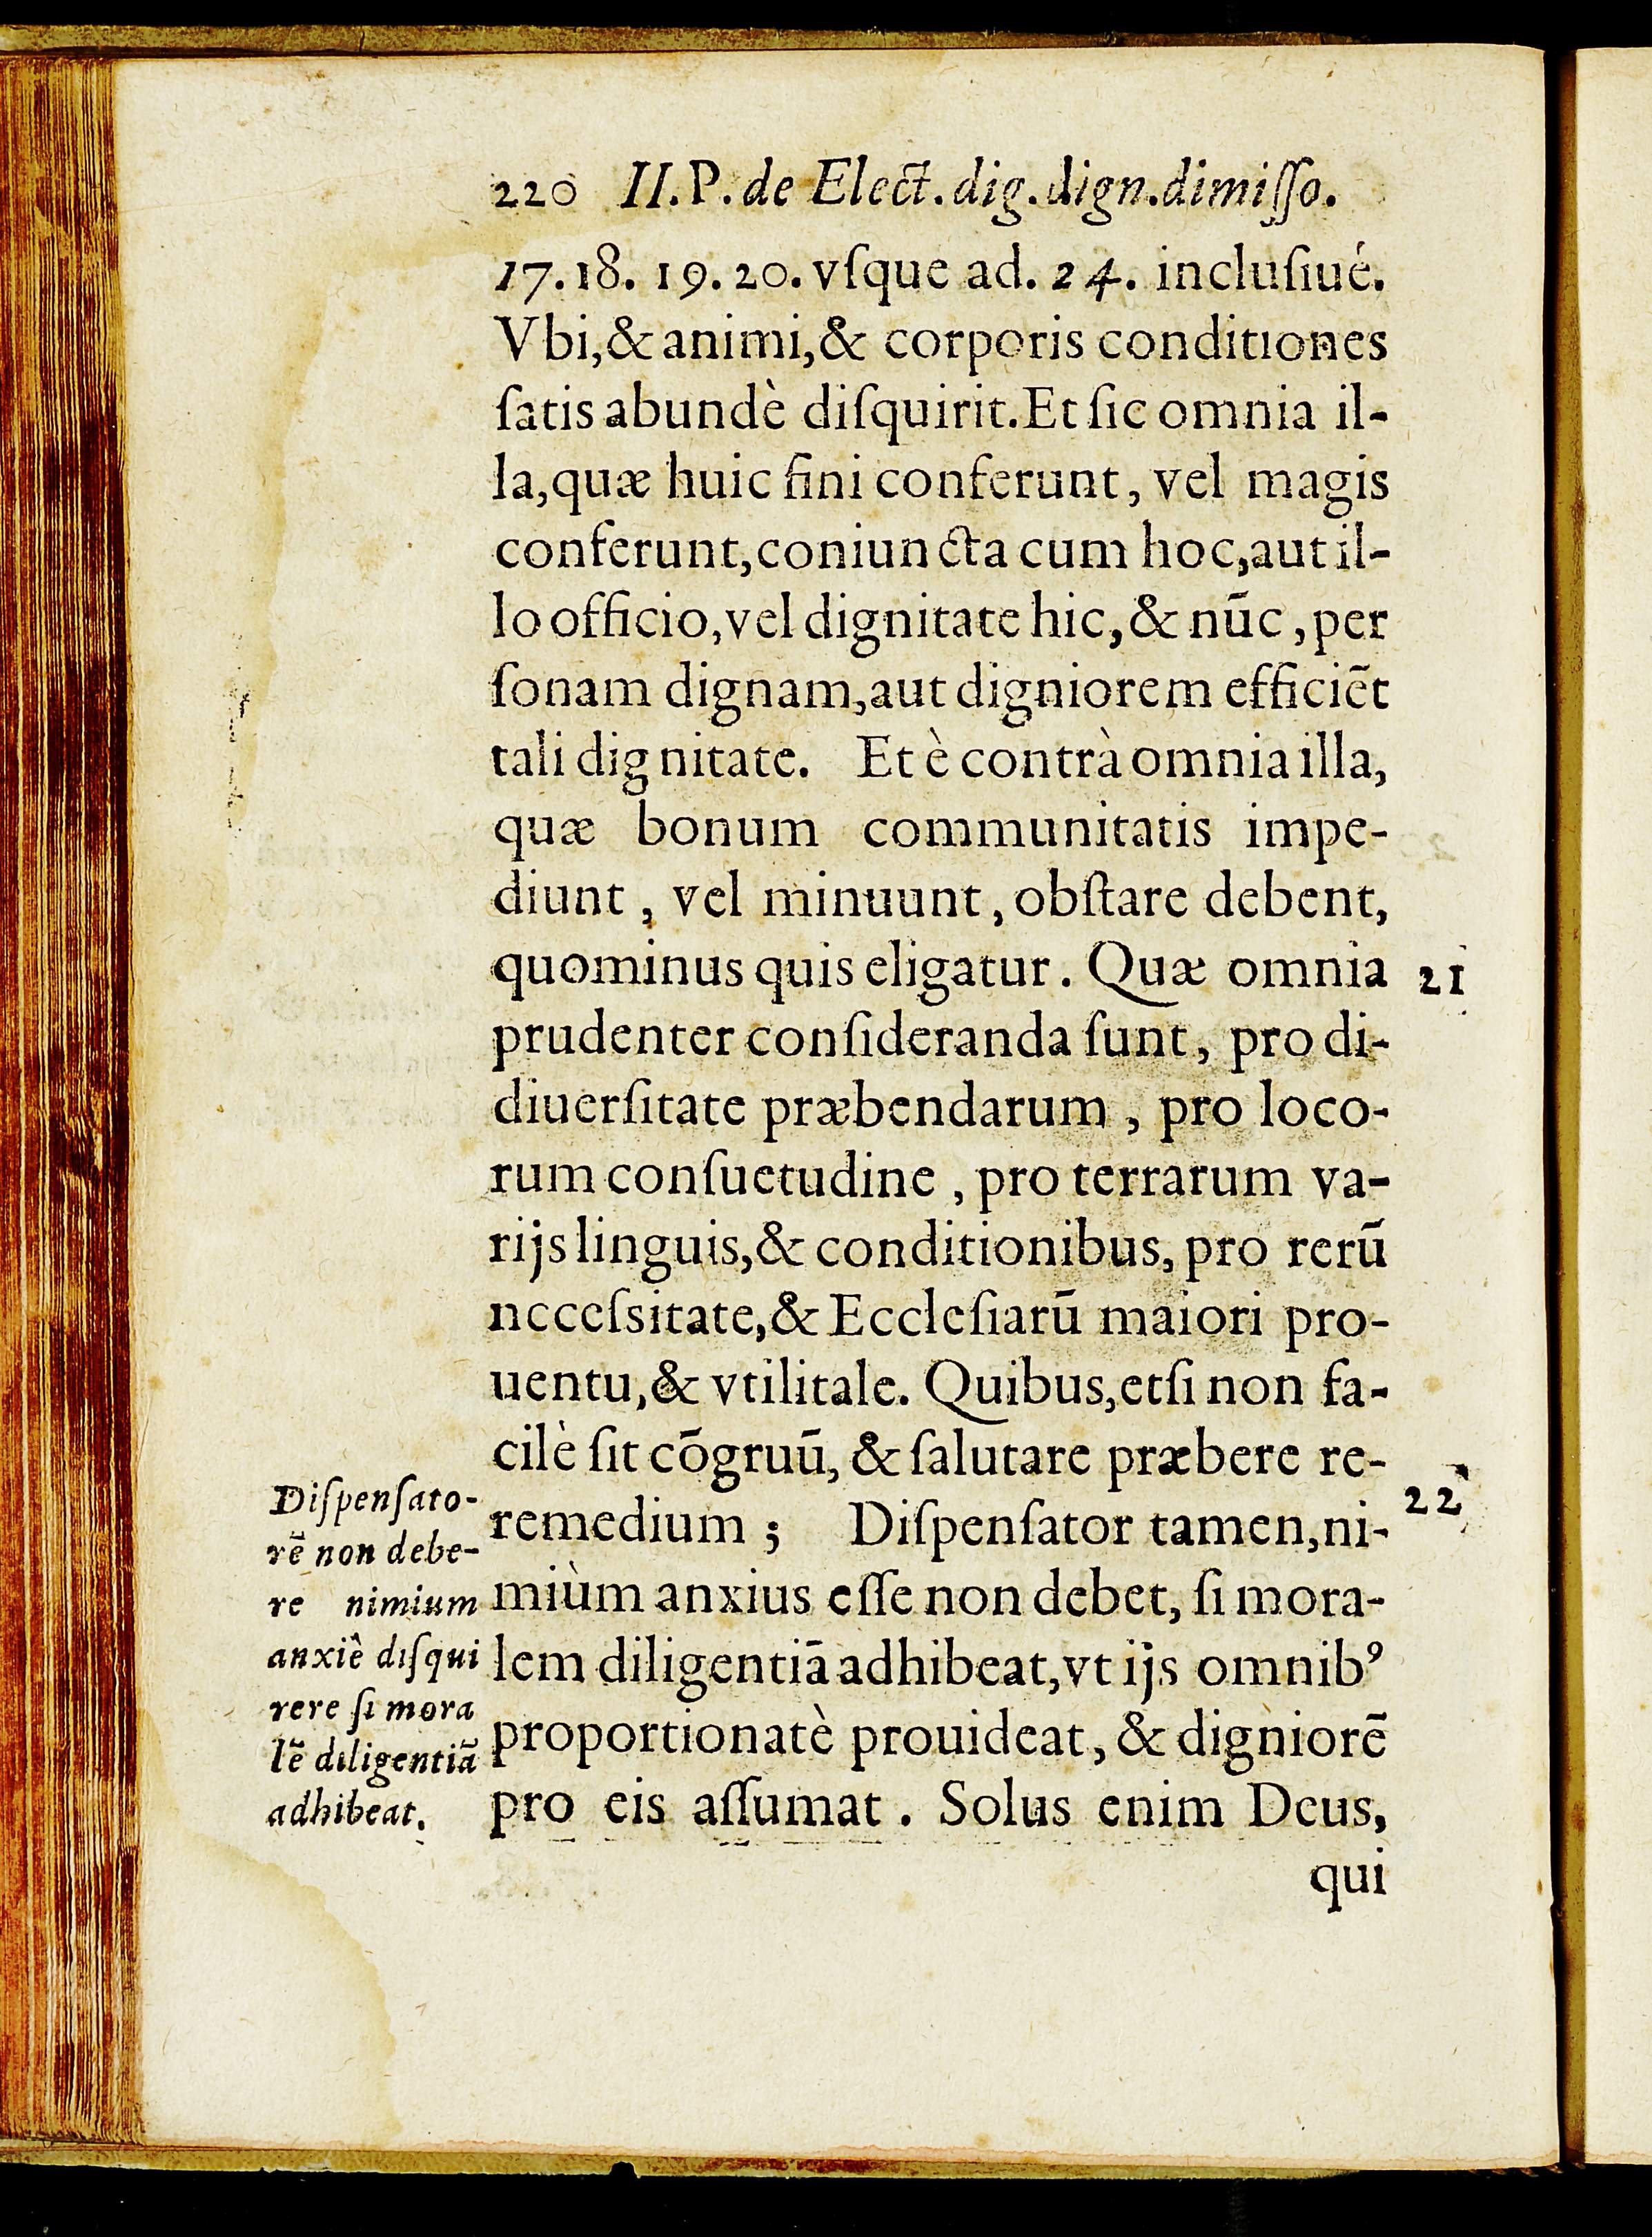 220 II.P. de Elect. dig. dign. dimiſſo.
17. 18. 19. 20. vſque ad. 24. incluſiué.
Vbi, & animi, & corporis conditiones
ſatis abundè diſquirit. Et ſic omnia il-
la, quæ huic fini conferunt, vel magis
conferunt, coniuncta cum hoc, aut il-
lo officio, vel dignitate hic, & nūc, per
ſonam dignam, aut digniorem efficiēt
tali dignitate. Et è contrà omnia illa,
quæ bonum communitatis impe-
diunt, vel minuunt, obſtare debent,
quominus quis eligatur. Quæ omnia
21
prudenter conſideranda ſunt, pro di-
diuerſitate præbendarum, pro loco-
rum conſuetudine, pro terrarum va-
rijs linguis, & conditionibus, pro rerū
neceſsitate, & Eccleſiarū maiori pro-
uentu, & vtilitale. Quibus, etſi non fa-
cilè ſit cōgruū, & ſalutare præbere re-
remedium; Diſpenſator tamen, ni-
22
miùm anxius eſſe non debet, ſi mora-
lem diligentiā adhibeat, vt ijs omnibꝰ
proportionatè prouideat, & digniorē
pro eis aſſumat. Solus enim Deus,
qui
Diſpenſato-
rē non debe-
re nimium
anxiè diſqui
rere ſi mora
lē diligentiā
adhibeat.